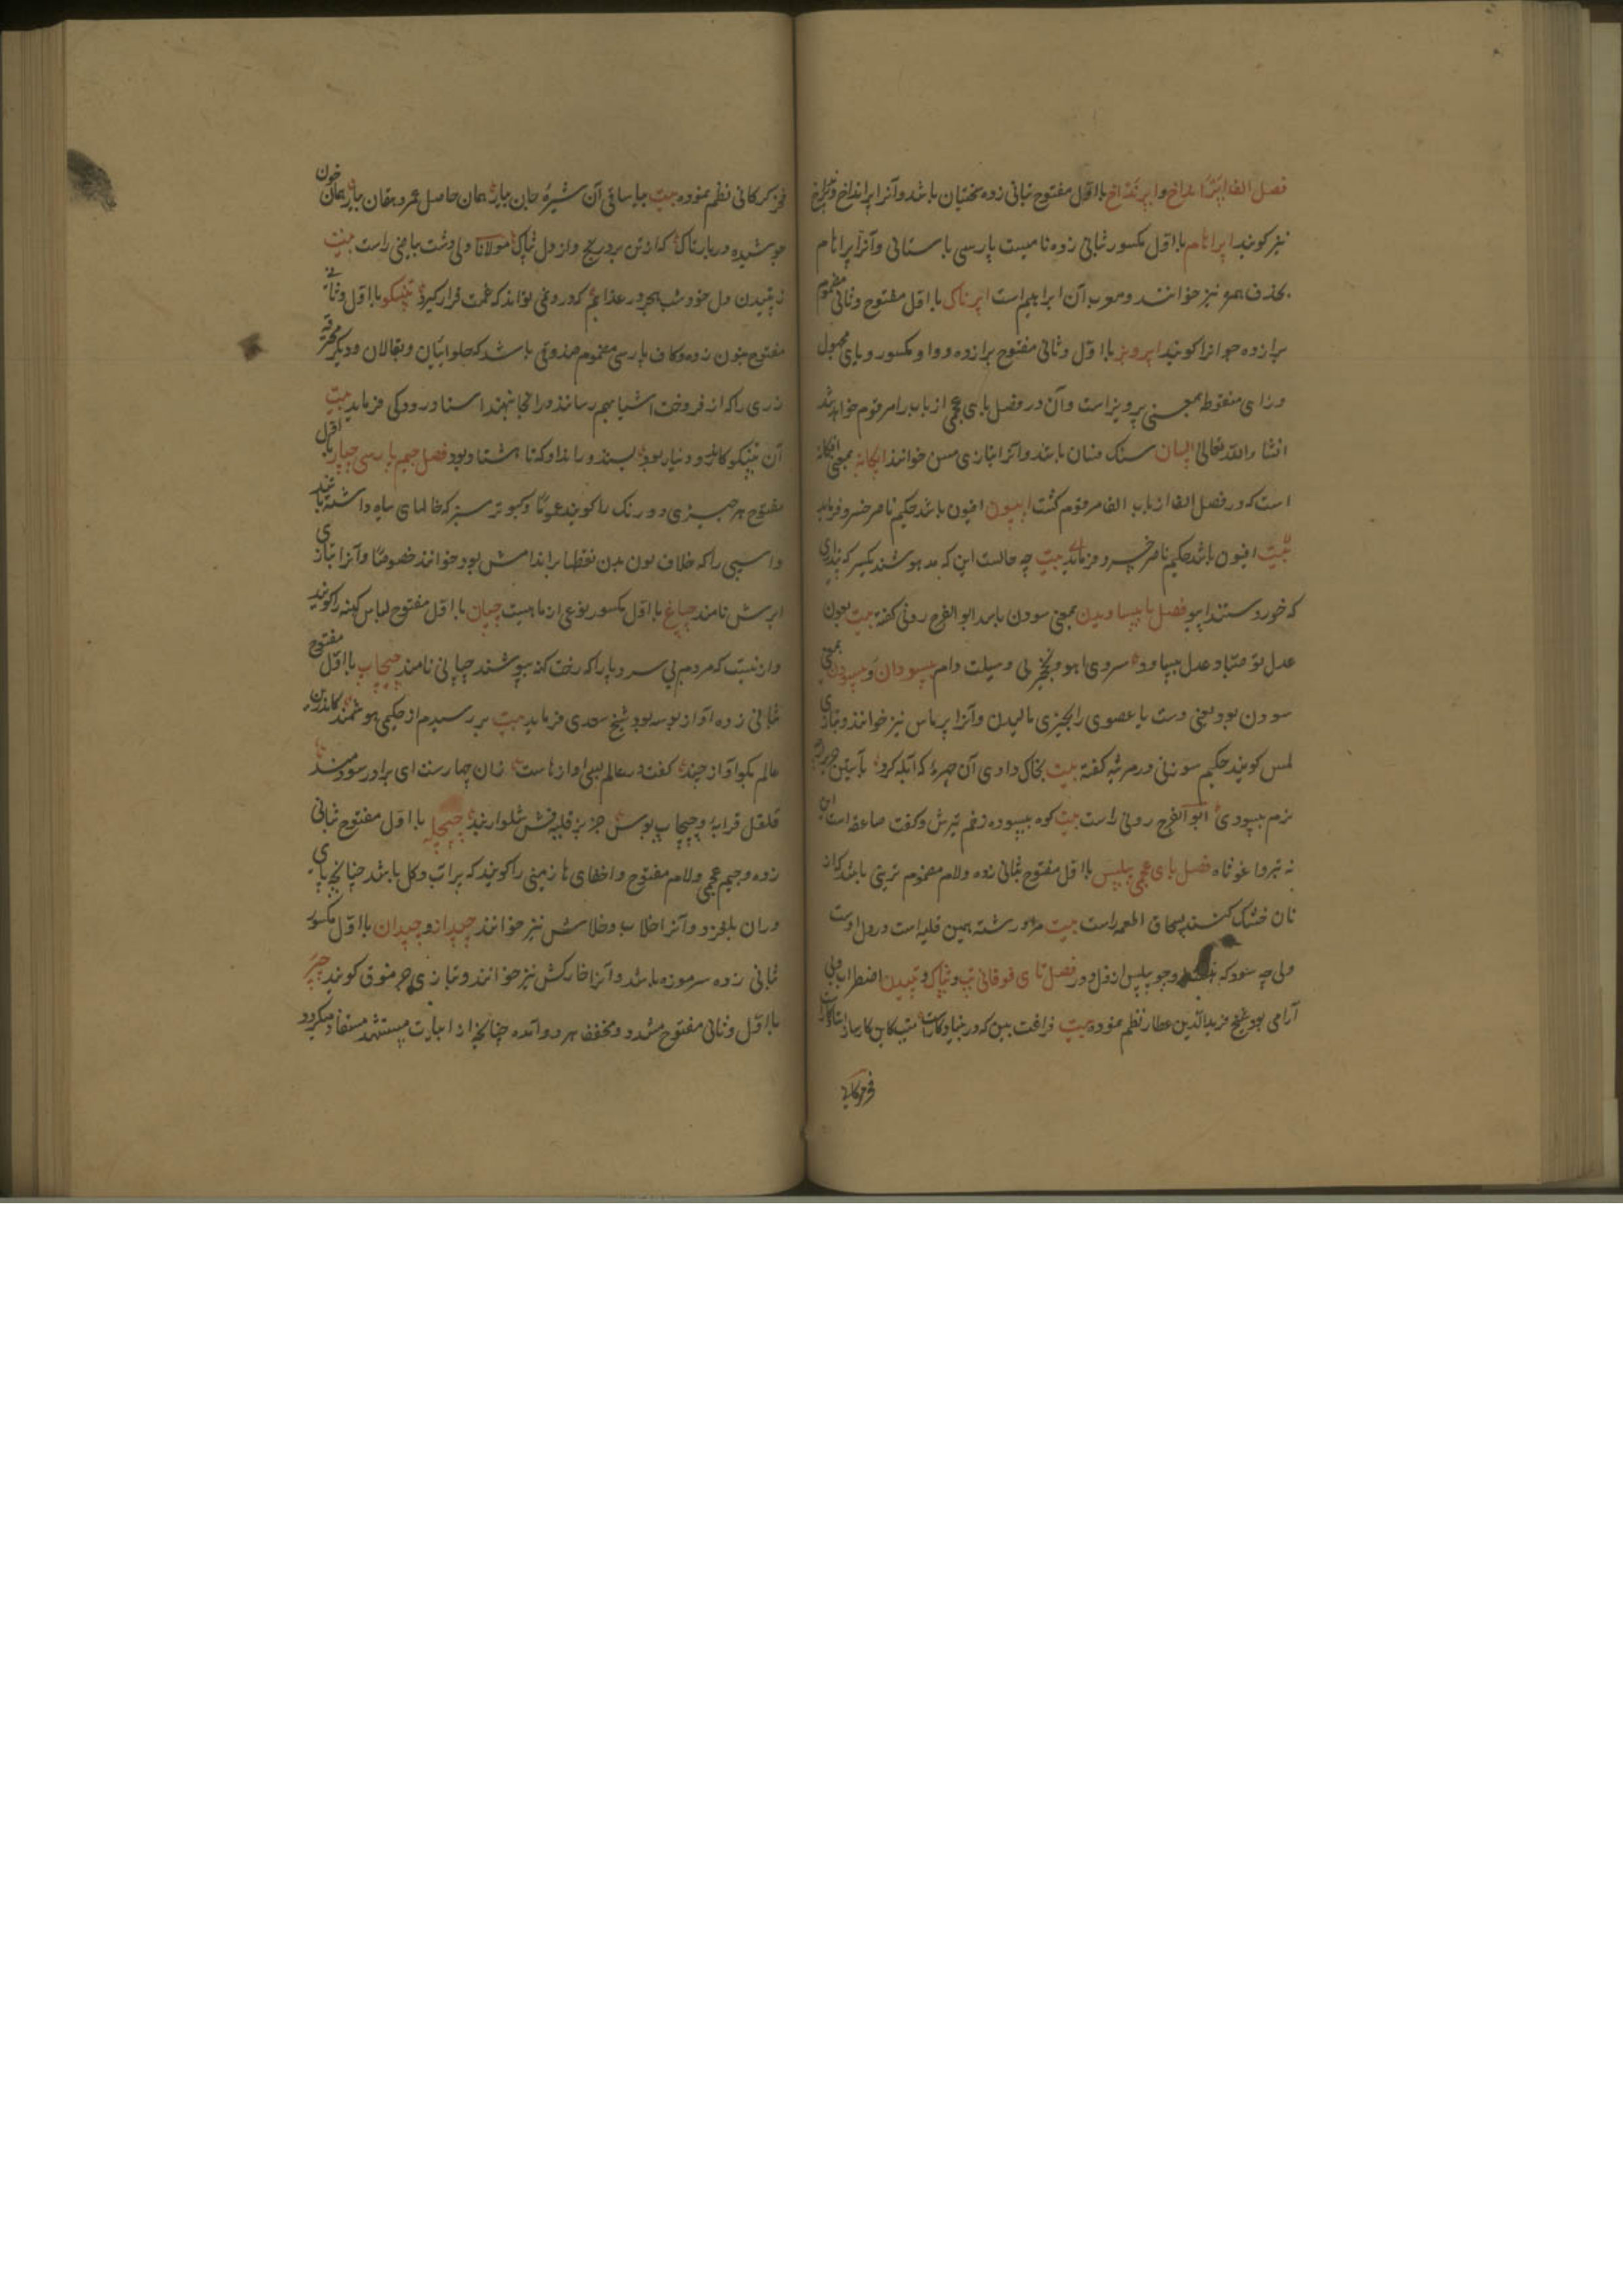 فصل الف اپرا انداخ و اپرنداخ با اول مفتوح بثانی زده سختیان باشد و آنرا پرانداخ و پرنداخ
نیز کویند اپراهام با اول مکسور بثانی زده نامیست پارسی باستانی و آنرا پراهام
بحذف همزه نیز خوانند و معرب آن ابراهیم است اپرناک با اول مفتوح و ثانی مضموم
برا زده جوانرا کویند اپرویز با اول و ثانی مفتوح برا زده و واو مکسور و یای مجهول
و زای منقوط بمعنی پرویز است و آن در فصل بای عجمی از باب را مرقوم خواهد شد
انشاء الله تعالی اپسان سنک فسان باشد و آنرا بتازی مسن خوانند اپکانه بمعنی افکانه
است که در فصل الف از باب الف مرقوم کشت اپیون افیون باشد حکیم ناصر خسرو فرماید
بیت افیون باشد حکیم ناصر خسرو فرماید بیت چه حالست این که مدهوشند یکسر که پنداری
که خوردستند اپیو فصل با بپساویدن بمعنی سودن باشد ابو الفرج رونی کفته بیت بعون
عدل تو متباد عدل بپساود سروی اهو و نخچیر بی وسیلت دام بپسودان و بپسودن بمعنی
سودن بود یعنی دست یا عضوی را بچیزی مالیدن و آنرا پرماس نیز خوانند و بتازی
لمس کویند حکیم سوزنی در مرثیه کفته بیت بخاک دادی آن چهره که آبله کرد بآستین حریر
نرم بپسودی ابو الفرج رونی راست بیت کوه بپسوده زخم تیرش و کفت صاعقه است این
نه تیر وا غوثاه فصل بای عجمی پپلس با اول مفتوح بثانی زده و لام مضموم تریتی باشد که از
نان خشک کنند بسحاق اطعمه راست بیت مزور رشته بهمین قلیه است در دل اوست
ولی چه سود که وجو پپلس از فل و در فصل تای فوقانی تپ و تپاک و تپیدن اضطراب و بی
آرامی بود شیخ فرید الدین عطار نظم نموده بیت
فخرکرکانی
فخر کرکانی نظم نموده بیت بیا ساقی آن شیره جان بیار همان حاصل عمر دهقان بیار همان خون
جوشیده در بار تاک که از تن برد رنج و از دل تپاک مولانا ولی دشت بیاضی راست بیت
ز تپیدن دل خود شب هجر در عذابم که دروغمی تواند که غمت قرار کیرد تپنکو با اول و ثانی
مفتوح بنون زده و کاف پارسی مضموم صندوقی باشد که حلوائیان و بقالان و دیکر محترفه
زری را که از فروخت اشیا بهم رسانند در انجا بنهند استاد رودکی فرماید بیت
آن تپنکو کاندرو دینار بود بستد و زر اندرو که نا هشتاد بود فصل جیم پارسی چپار با اول
مفتوح هر چیزی دو رنک را کویند عموماً و کبوتر سبز که خالهای سیاه داشته باشد
و اسپی را که خلاف لون بدن نقطها بر اندامش بود خوانند خصوصاً و آنرا بتازی
ابرش نامند چپاغ با اول مکسور نوعی از ماهیست چپان با اول مفتوح لباس کهنه را کویند
و از نیست که مردم بی سر و پا را که رخت کهنه بپوشند چپانی نامند چپچاپ با اول مفتوح
بثانی زده آواز بوسه بود شیخ سعدی فرماید بیت بر رسیدم از حکیمی هوشمند کاندرین
عالم بکو آواز چند کفت در عالم بسی اواز هاست زان چهارست ای برادر سودمند
قلقل قرابه و چپچاپ بوس جزیز قلیه فش شلوار بند چپچله با اول مفتوح بثانی
زده و جیم عجمی و لام مفتوح و اخفای ها زمینی را کویند که پر آب و کل باشد چنانچه پای
دران بلغزد و آنرا خلاب و خلاش نیز خوانند چپدار و چپدان با اول مکسور
ثانی زده سرموزه باشد و آنرا خارکش نیز خوانند و بتازی جرموق کویند چپر
با اول و ثانی مفتوح مشدد و مخفف هر دو آمده چنانچه از ابیات مستشهد مستفاد میکردد